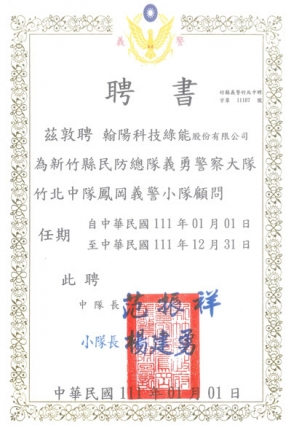 義警
聘書
竹縣義警竹北中聘
字第 11107 號
茲敦聘 翰陽科技綠能股份有限公司
為新竹縣民防總隊義勇警察大隊
竹北中隊鳳岡義警小隊顧問
任期
自中華民國 111 年 01 月 01 日
至中華民國 111 年 12 月 31 日
此聘
中隊長 范振祥
小隊長 楊建勇
中華民國 111 年 01 月 01 日